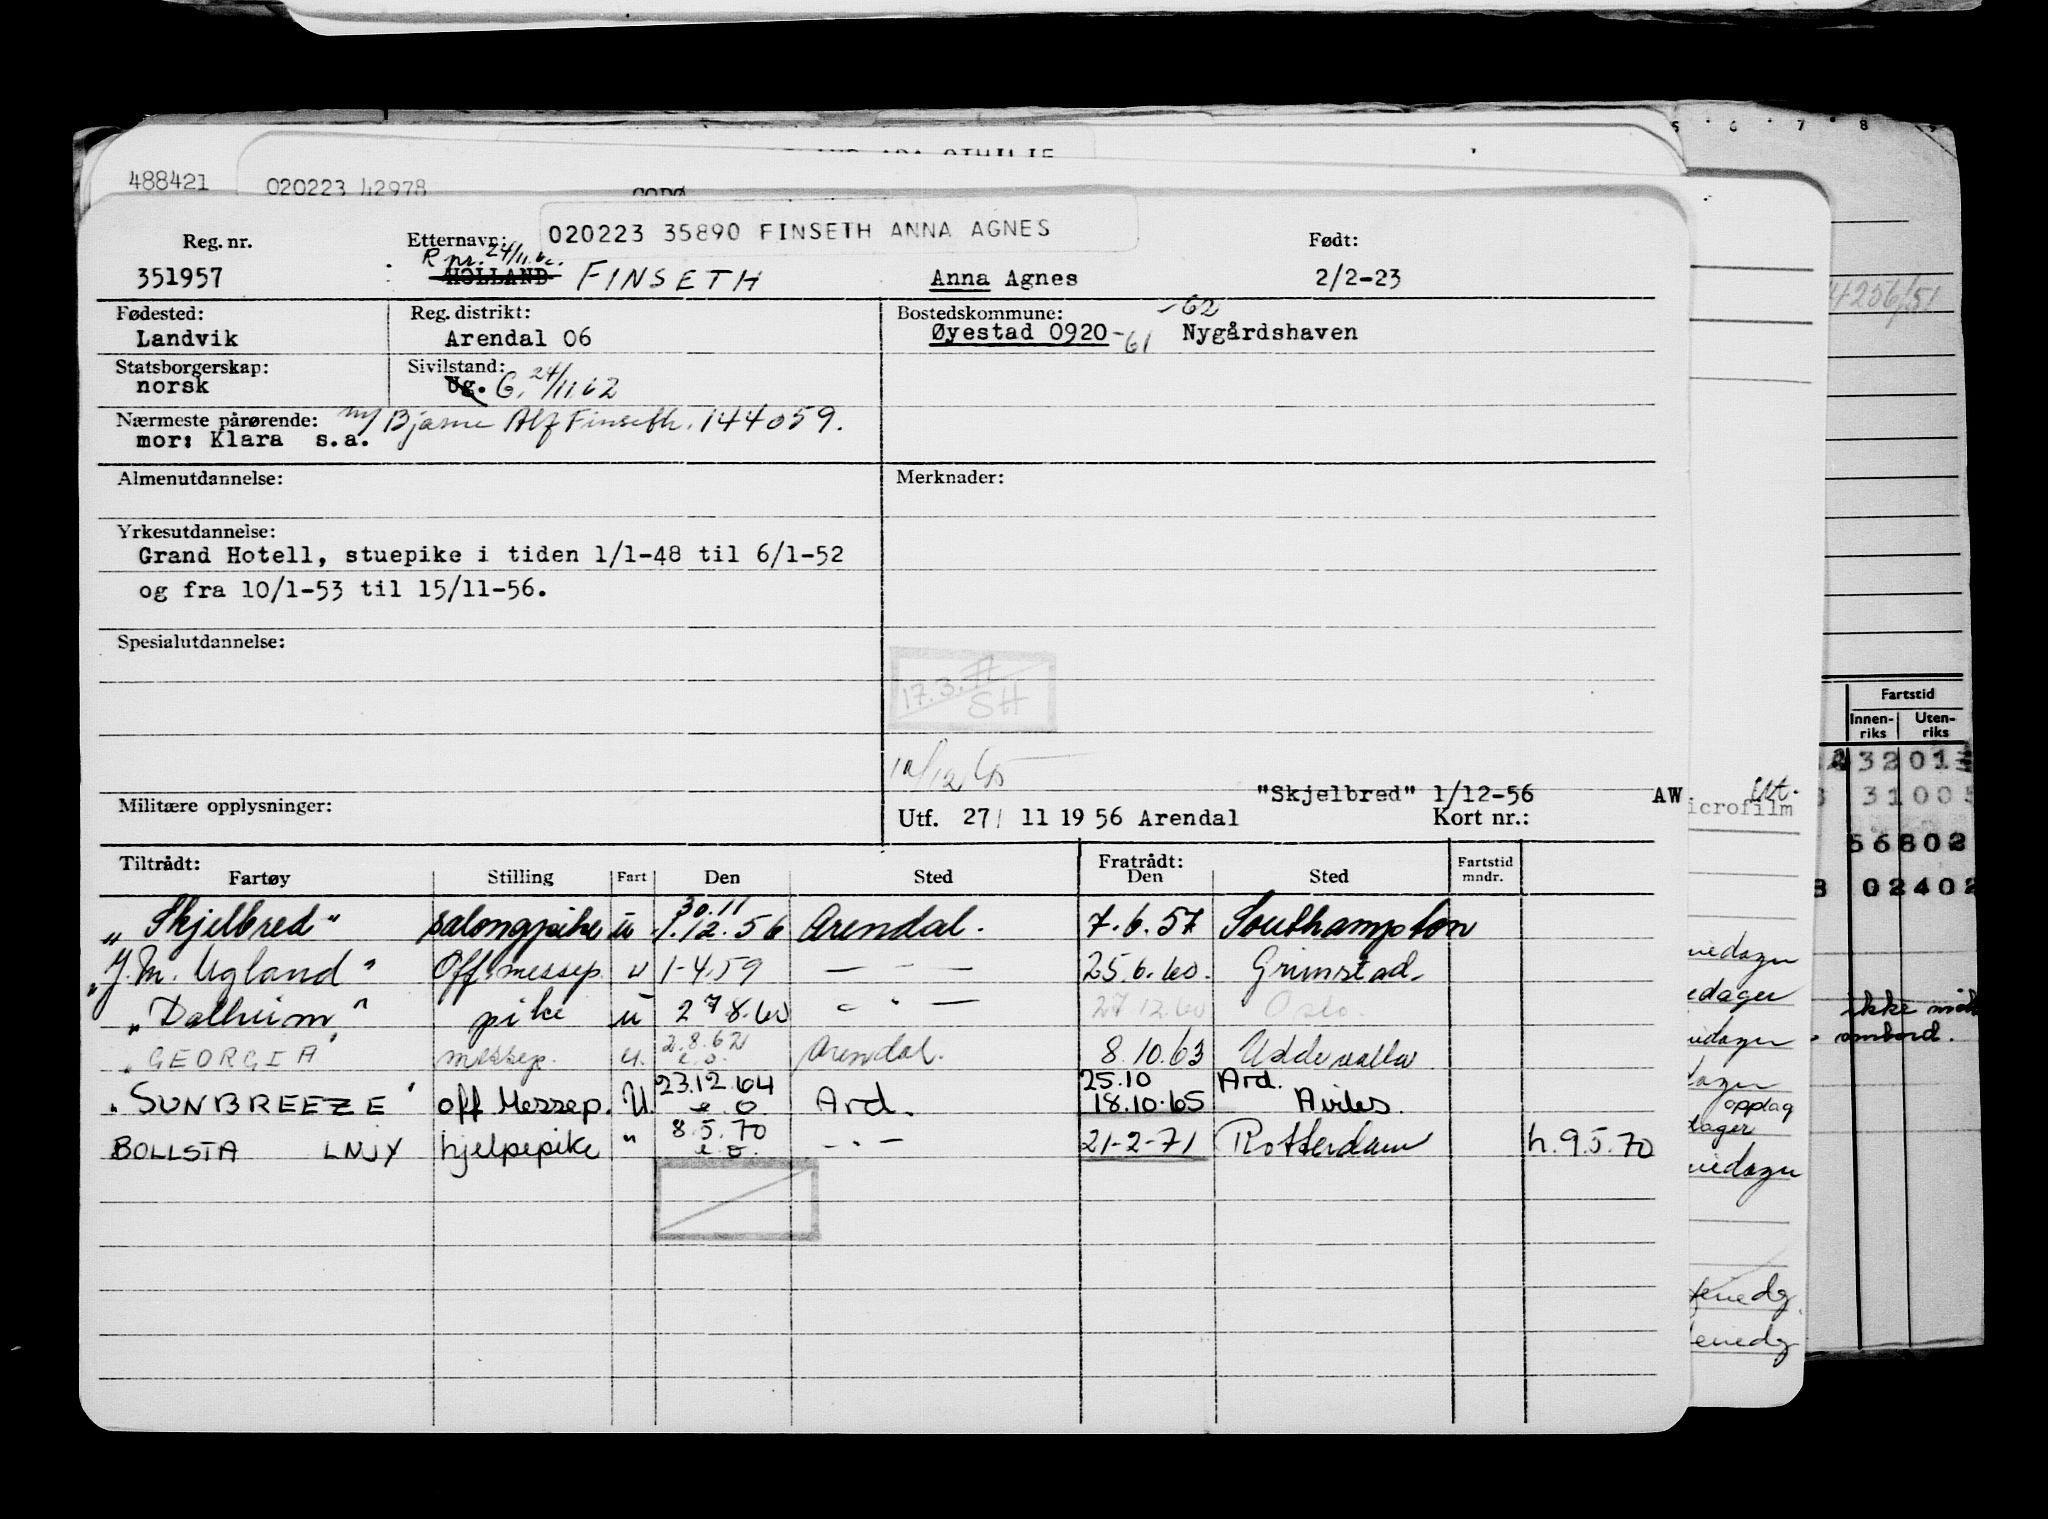 488421
020223 42978
GODØ
020223 35890 FINSETH ANNA AGNES
Reg. nr. Etternavn: Født:
R pr. 24/11.62.
351957 HOLLAND FINSETH Anna Agnes 2/2-23
Fødested: Reg. distrikt: Bostedskommune: -62
Landvik Arendal 06 Øyestad 0920 -61 Nygårdshaven
Statsborgerskap: Sivilstand:
norsk Ug. G. 24/11 62
Nærmeste pårørende: m/ Bjarne Alf Finseth. 144059.
mor: Klara s.a.
Almenutdannelse: Merknader:
Yrkesutdannelse:
Grand Hotell, stuepike i tiden 1/1-48 til 6/1-52
og fra 10/1-53 til 15/11-56.
Spesialutdannelse:
17.3.71
SH
"Skjelbred" 1/12-56 AW
Militære opplysninger: Utf. 27/ 11 1956 Arendal Kort nr.:
Tiltrådt: Fratrådt: Fartstid
Fartøy Stilling Fart Den Sted Den Sted mndr.
30.11
"Skjelbred" salongpike u 1.12.56 Arendal. 7.6.57 Southampton
"J.M. Ugland" Off.messep. u 1-4.59 — — — 25.6.60. Grimstad.
"Dalheim" pike u 27 8.60 — " — 27.12.60 Oslo.
2.8.62
"GEORGIA" messep. u. e.o. Arendal. 8.10.63 Uddevalla
23.12.64 25.10 Ard.
"SUNBREEZE" off Messep. U. e.o. Ard. 18.10.65 Aviles.
8.5.70
BOLLSTA LNJY hjelpepike " e.o. — " — 21-2-71 Rotterdam h.9.5.70
5 6 7 8
4256/51
Fartstid
Innen-riks Uten-riks
icrofilm
56802
02402
ikke
ombord.
opplag